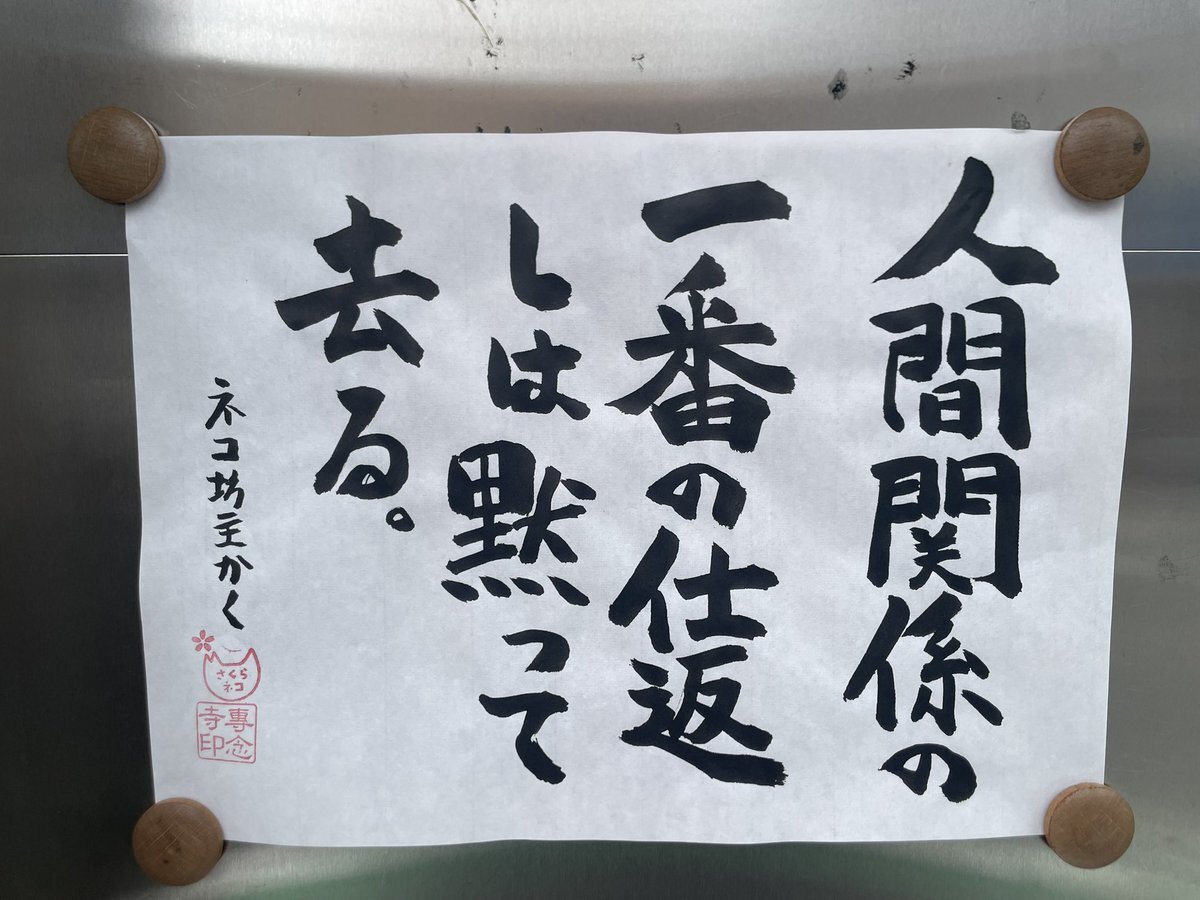 人間関係の
一番の仕返
しは黙って
去る。
ネコ坊主かく
さくら
ネコ
專念
寺印